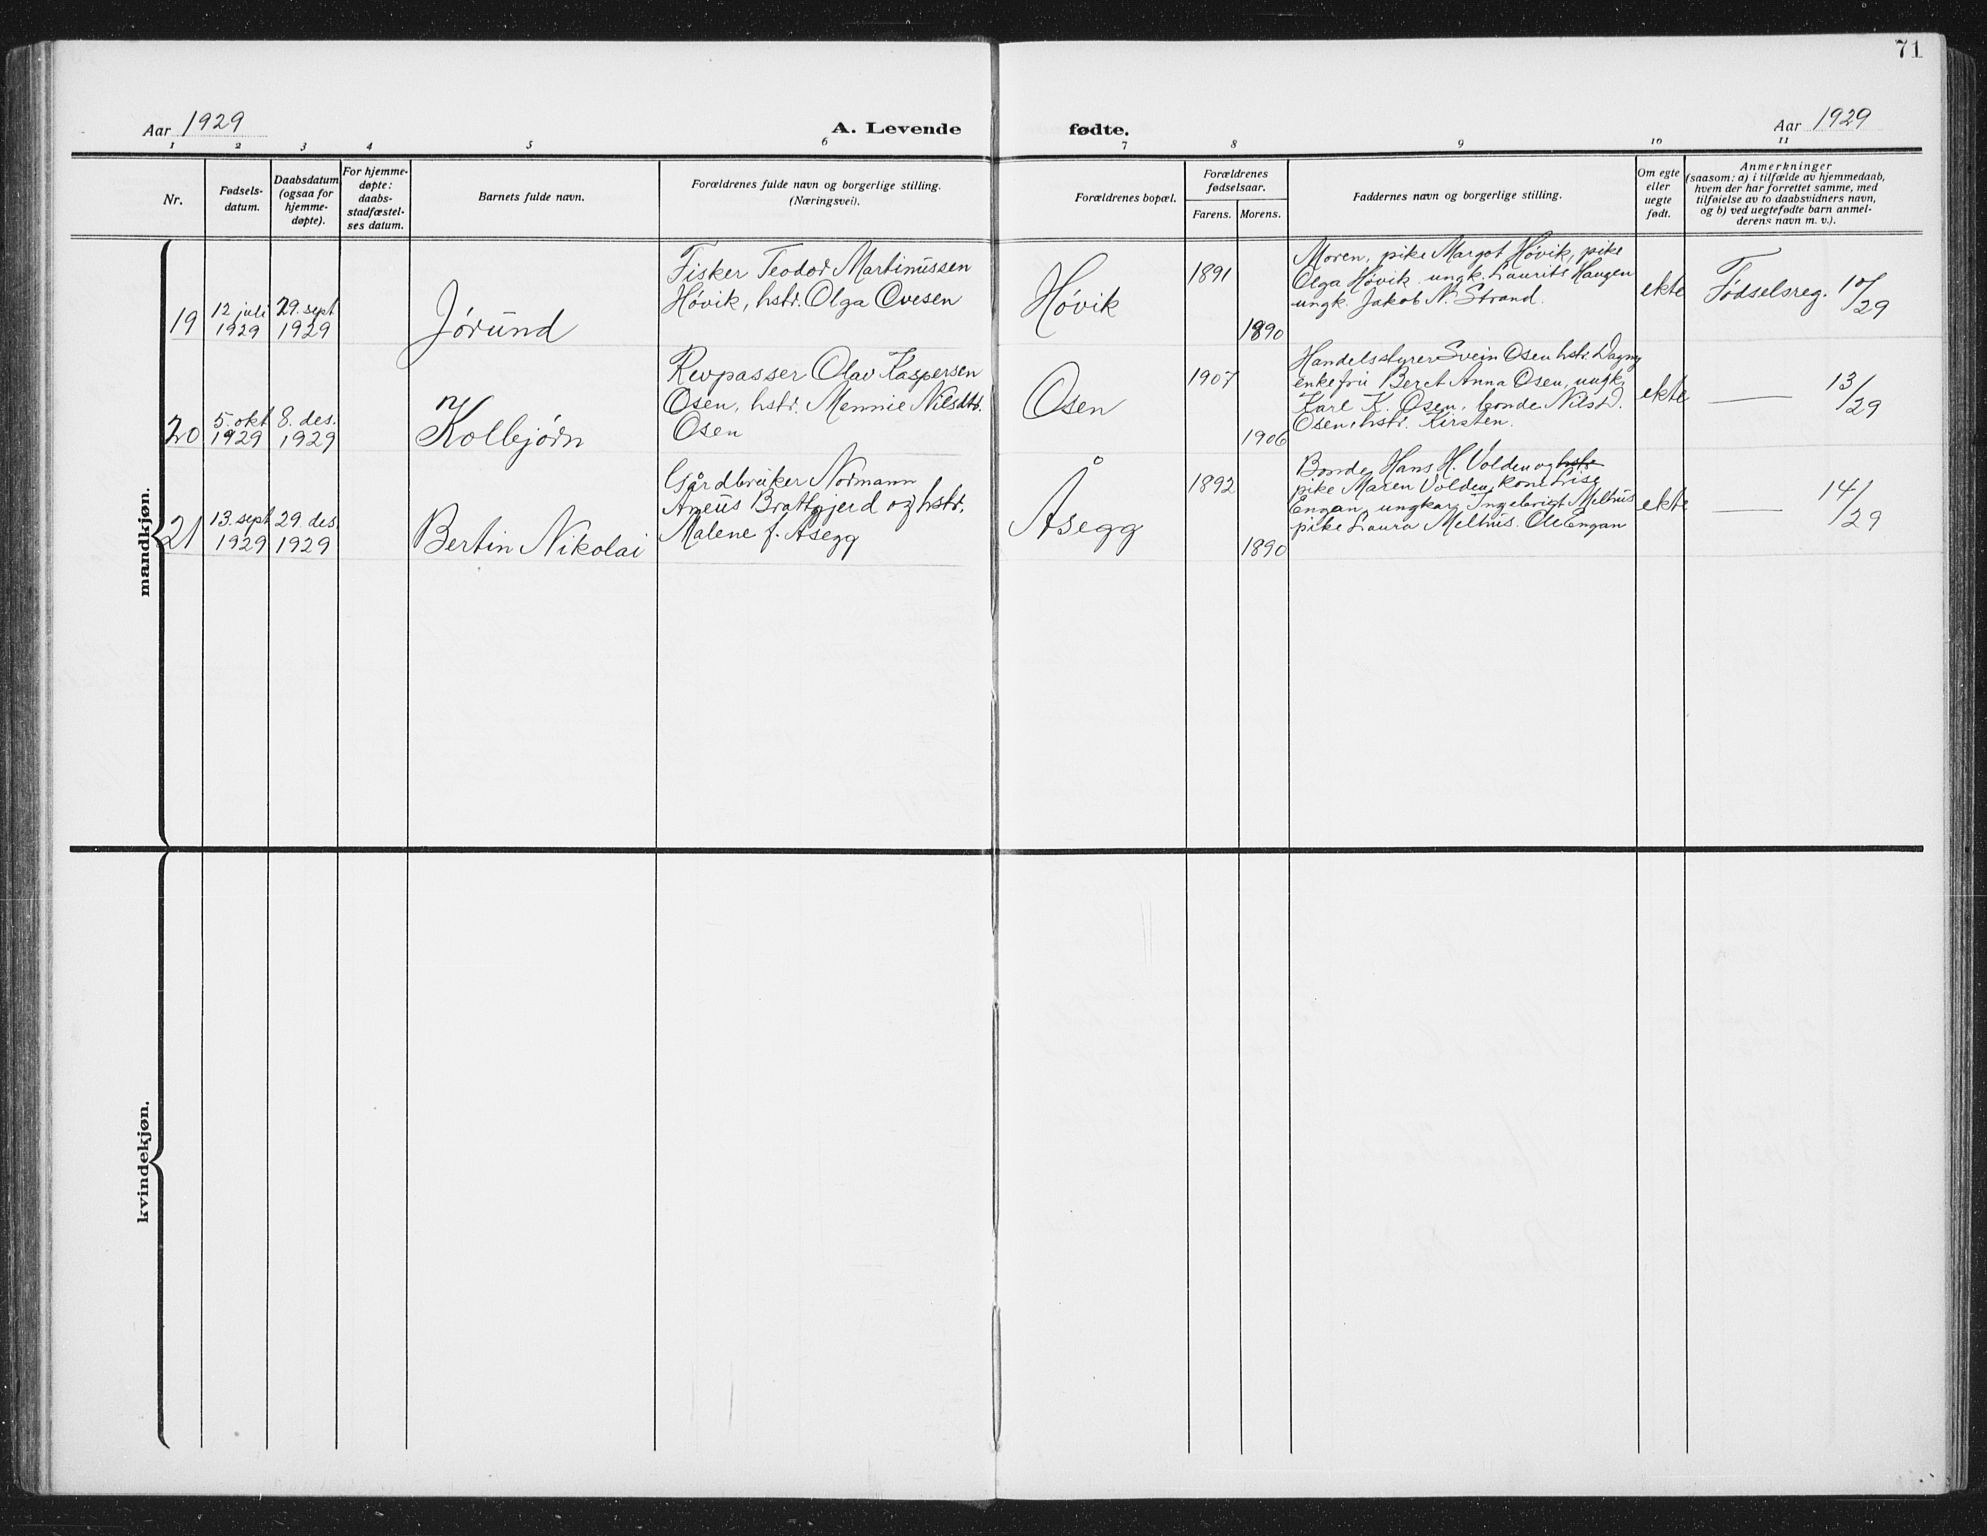 71
Aar 1929
A. Levende fødte.
Aar 1929
1 2 3 4 5 6 7 8 9 10 11
Nr.
Fødsels-
datum.
Daabsdatum
(ogsaa for
hjemme-
døpte).
For hjemme-
døpte:
daabs-
stadfæstel-
ses datum.
Barnets fulde navn.
Forældrenes fulde navn og borgerlige stilling.
(Næringsvei).
Forældrenes bopæl.
Forældrenes
fødselsaar.
Farens. Morens.
Faddernes navn og borgerlige stilling.
Om egte
eller
uegte
født.
Anmerkninger
(saasom: a) i tilfælde av hjemmedaab,
hvem der har forrettet samme, med
tilføielse av to daabsvidners navn,
og b) ved uegtefødte barn anmel-
derens navn m. v.).
mandkjøn.
19
12 juli
1929
29. sept
1929
Jørund
Fisker Teodor Martinussen
Høvik, hstr. Olga Ovesen
Høvik
1891
1890
Moren, pike Margot Høvik, pike
Olga Høvik ungk. Laurits Haugen
ungk. Jakob N. Strand.
ekte
Fødselsreg. 10/29
20
5. okt
1929
8. des.
1929
Kolbjørn
Revpasser Olav Kaspersen
Osen, hstr. Mennie Nilsdtr.
Osen
Osen
1907
1906
Handelsstyrer Svein Osen hstr. Dagny
enkefru Beret Anna Osen, ungk.
Karl K. Osen, bonde Nils D.
Osen, hstr. Kirsten.
ekte
— 13/29
21
13. sept
1929
29. des.
1929
Bertin Nikolai
Gårdbruker Normann
Ameus Brattgjerd og hstr.
Malene f. Åsegg
Åsegg
1892
1890
Bonde Hans H. Volden og hstr.
pike Maren Volden, kone Lise
Engan, ungkar Ingebrigt Melhus
pike Laura Melhus. Ole Engan
ekte
— 14/29
kvindekjøn.